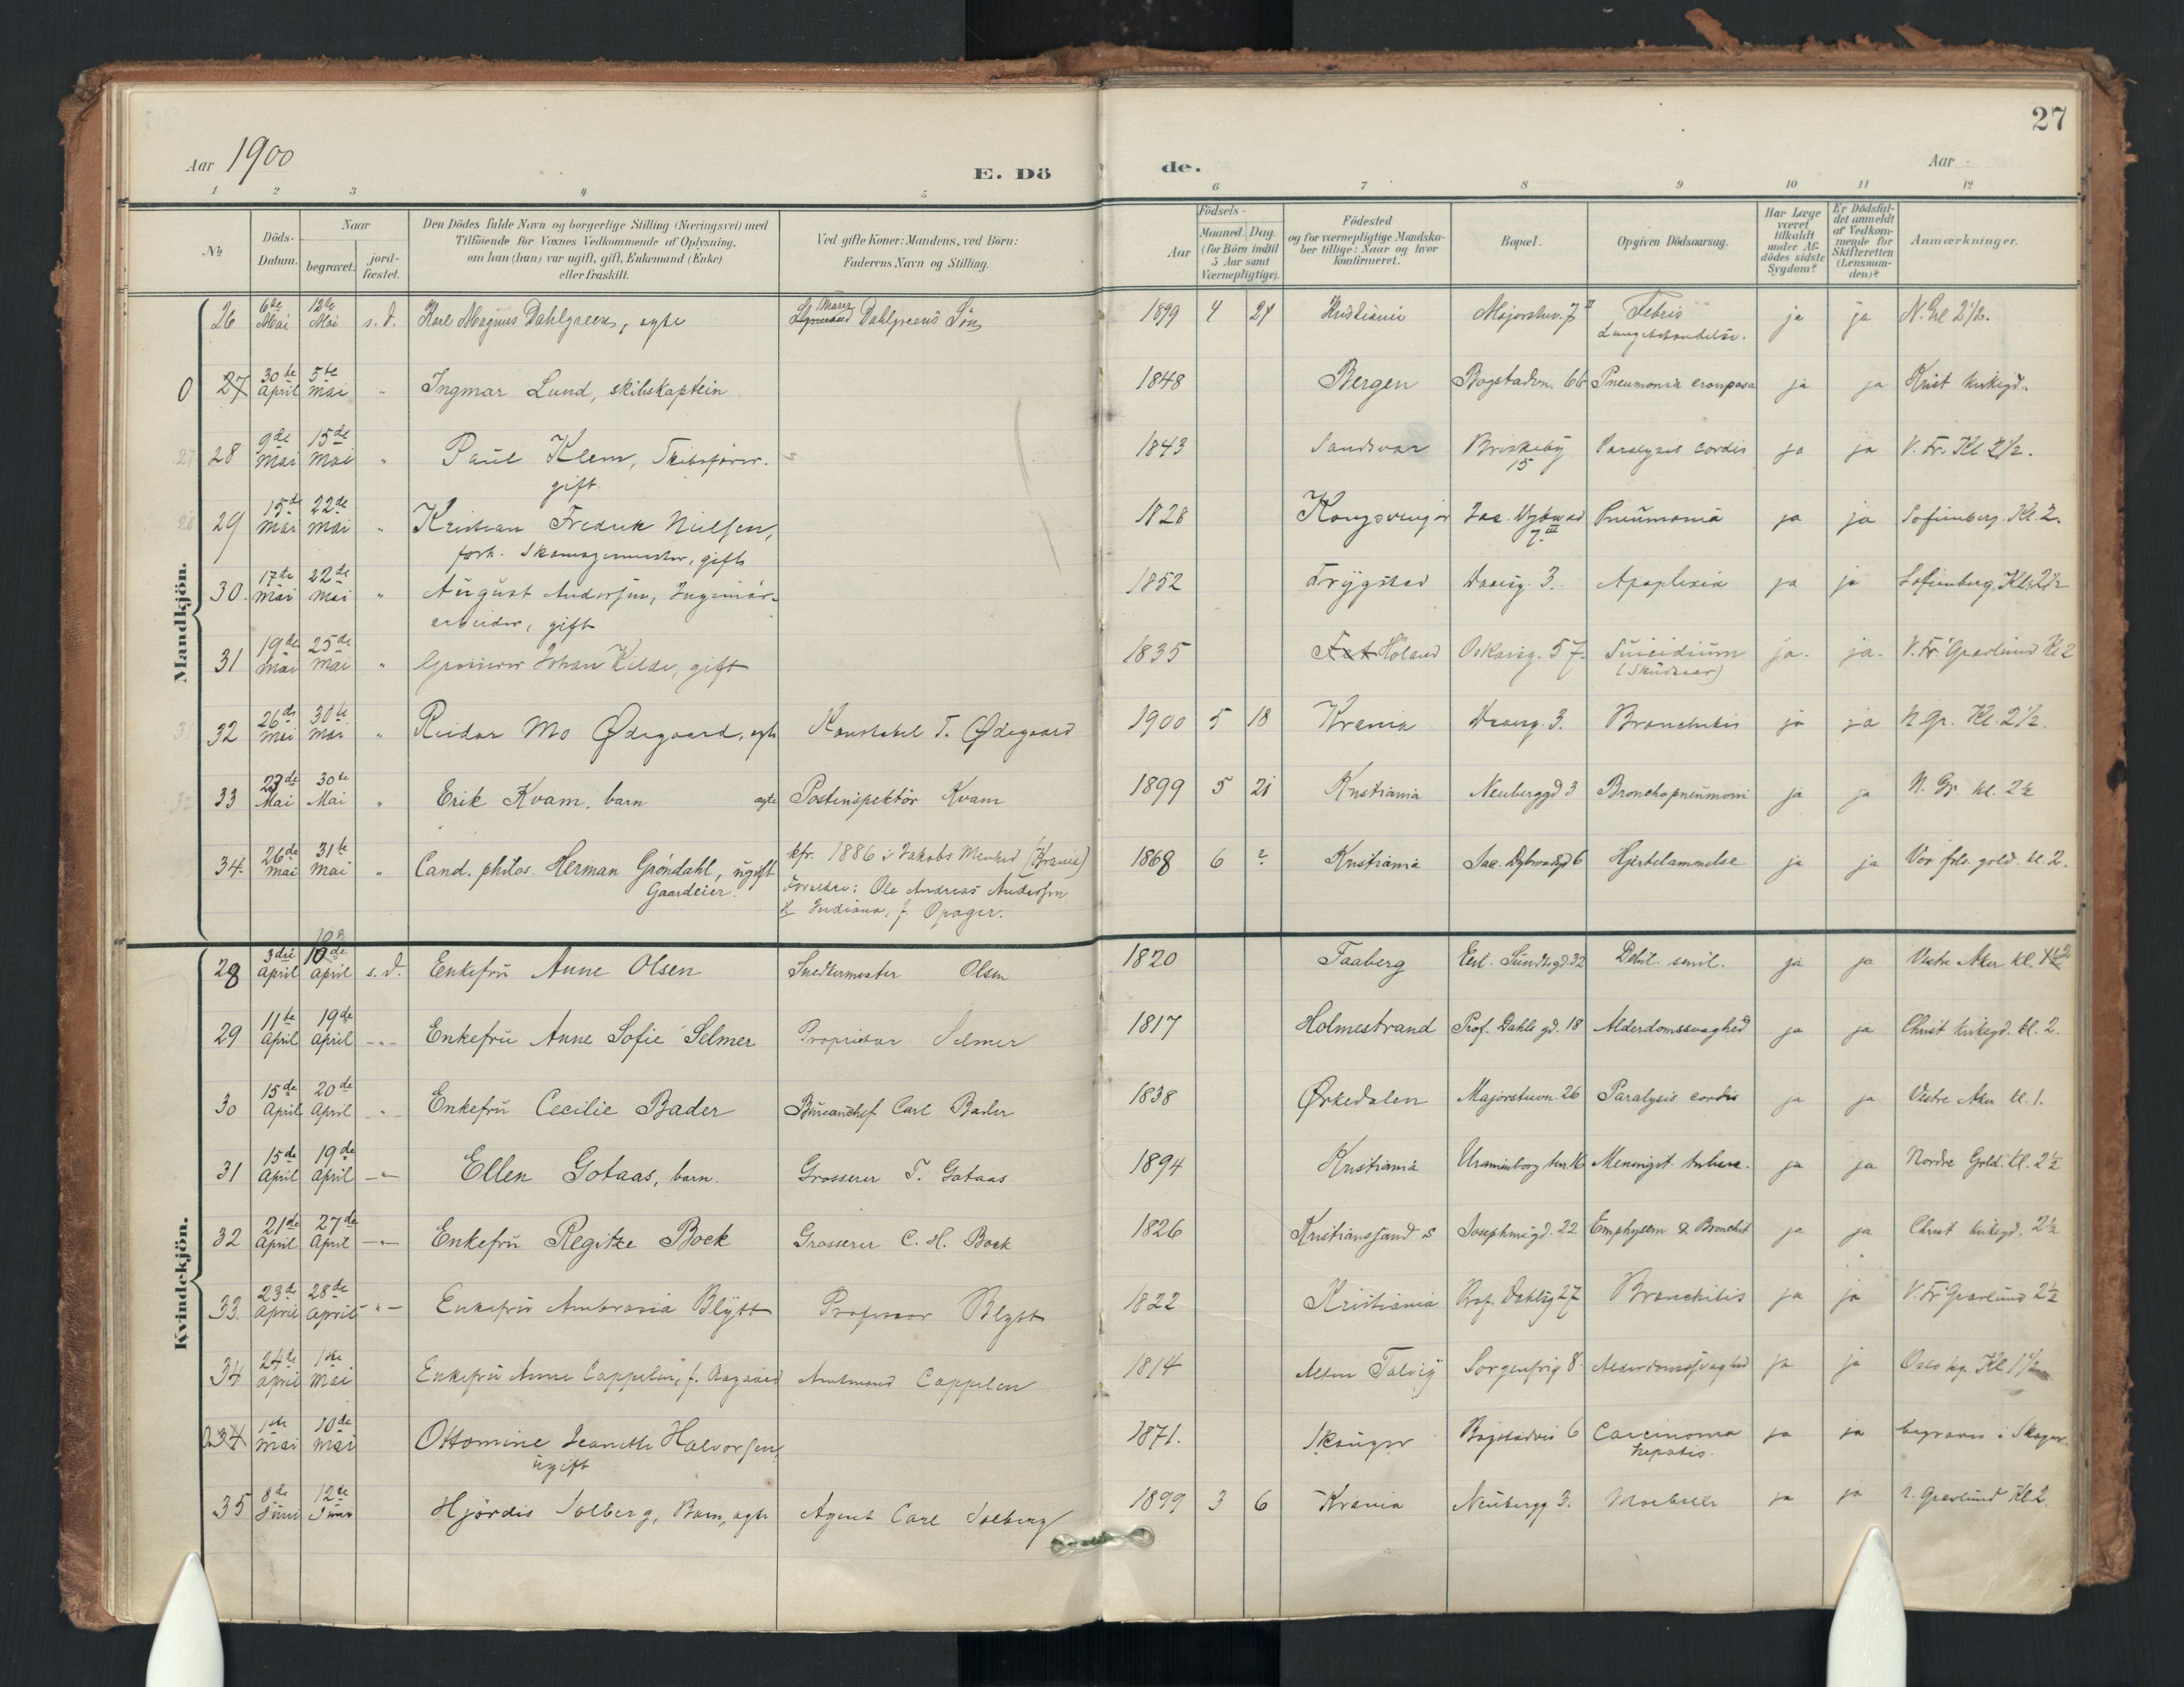 27
Aar 1900
E. Dö
de.
Aar
1 2 3 4 5 6 7 8 9 10 11 12
No
Döds-Datum.
Naar
begravet.
jord-fæstet.
Den Dödes fulde Navn og borgerlige Stilling (Næringsvei) med
Tilföiende for Voxnes Vedkommende af Oplysning,
om han (hun) var ugift, gift, Enkemand (Enke)
eller fraskilt.
Ved gifte Koner: Mandens, ved Börn:
Faderens Navn og Stilling.
Födsels-
Aar
Maaned. Dag.
(for Börn indtil
5 Aar samt
Værnepligtige).
Födested
og for værnepligtige Mandska-
ber tillige: Naar og hvor
konfirmeret.
Bopæl.
Opgiven Dödsaarsag.
Har Læge
været
tilkaldt
under Af-
dödes sidste
Sygdom?
Er Dödsfal-
det anmeldt
af Vedkom-
mende for
Skifteretten
(Lensman-
den)?
Anmærkninger.
Mandkjön.
26 6te Mai 12te Mai s. d. Karl Magnus Dahlgreen, ægte Dahlgreens Søn 1899 4 Kristiania Majorstuv. 7 II Febris ja ja N. Gr. kl 2 1/2.
0 27 30te April 5te Mai " Ingmar Lund, skibskaptein 1848 Bergen Bogstadvn. 66 Pneumonia crouposa ja ja Krist kirkegd.
27 28 9de Mai 15de Mai " Paul Klem, Skibsfører.
gift 1843 Sandsvær Briskeby 15 Paralysis cordis ja ja V. Fr. Kl 2 1/2.
28 29 15de Mai 22de Mai " Kristian Fredrik Nielsen,
forh. Skomagermester, gift 1828 Kongsvinger Jac. Dybwad 7 III Pneumonia ja ja Sofienberg. Kl. 2.
30. 17de Mai 22de Mai " August Andersen, Ingeniør-
arbeider, gift 1852 Trygstad Daasg. 3. Apoplexia ja ja Sofienberg. Kl. 2 1/2
31 19de Mai 25de Mai " Grosserer Johan Kilde, gift 1835 Fet Höland Oskarsg. 57. Suicidium
(Skudsaar) ja. ja. V. Fr. Gravlund Kl 2
31 32 26de Mai 30te Mai " Reidar Mo Ødegaard, ægte Konstabel T. Ødegaard 1900 5 18 Krania Daasg. 3. Bronchitis ja ja N. Gr. Kl. 2 1/2.
32 33 23de Mai 30te Mai " Erik Kvam, barn ægte Postinspektör Kvam 1899 5 21 Kristiania Neuberggd 3 Bronchopneumoni ja ja N. Gr. kl. 2 1/2
34. 26de Mai 31te Mai " Cand. philos. Herman Gröndahl, ugift
Gaardeier. kfr. 1886 i Jakobs Menhed (Krania)
Forældre: Ole Andreas Andersen
& Indiana, f. Opager. 1868 6 ? Kristiania Jac. Dybwadsgd 6 Hjertelammelse ja ja Vor frls. gvld. kl. 2.
Kvindekjön.
28 3die April 10de April s. d. Enkefru Anne Olsen Snedkermester Olsen 1820 Faaberg Eil. Sundtsgd. 32 Debil. senil. ja ja Vestre Aker kl. 2
29 11te April 19de April -"- Enkefru Anne Sofie Selmer Proprietær Selmer 1817 Holmestrand Prof. Dahls gd. 18 Alderdomssvaghed ja ja Christ kirkegd. kl. 2.
30 15de April 20de April -"- Enkefru Cecilie Bader Bureauchef Carl Bader 1838 Ørkedalen Majorstuvn. 26 Paralysis cordis ja ja Vestre Aker kl. 1.
31 15de April 19de April -"- Ellen Gotaas, barn. Grosserer T. Gotaas 1894 Kristiania Uranienborg tvn. 16 Meningit. tuberc. ja ja Nordre Gvld. kl. 2 1/2
32 21de April 27de April -"- Enkefru Regitze Bock Grosserer C. H. Bock 1826 Kristianssand S Josephinegd. 22 Emphysem & Bronchit ja ja Christ kirkegd. 2 1/2
33. 23de April 28de April -"- Enkefru Ambrosia Blytt Professor Blytt 1822 Kristiania Prof. Dahlsg 27 Bronchitis ja ja V. Fr. Gravlund 2 1/2
34 24de April 1ste Mai Enkefru Anne Cappelen, f. Aagaard Amtmand Cappelen 1814 Alten Talvig Sorgenfrig 8. Alderdomssvaghed ja ja Oslo kg. Kl 1 1/2
34 1ste Mai 10de Mai Ottomine Jeanette Halvorsen,
ugift 1871. Skouger Bogstadvei 6 Carcinoma
hepatis. ja ja begraves i Skoger.
35 8de Juni 12te Juni Hjørdis Solberg, Barn, ægte Agent Carl Solberg 1899 3 6 Krania Neubergg 3. Morbilli ja ja N. Gravlund Kl 2.